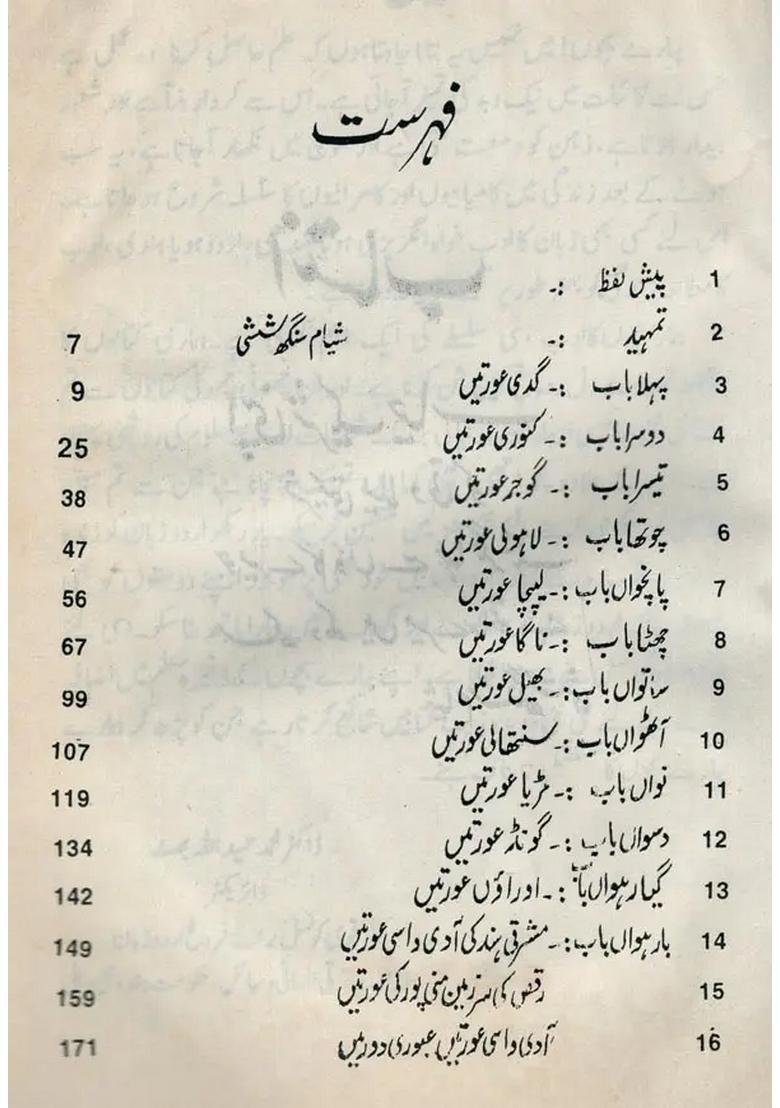 فہرست
1 پیش لفظ :۔
2 تمہید :۔ شیام سنگھ ششی 7
3 پہلا باب :۔ گدی عورتیں 9
4 دوسرا باب :۔ کنوری عورتیں 25
5 تیسرا باب :۔ گوجر عورتیں 38
6 چوتھا باب :۔ لاہولی عورتیں 47
7 پانچواں باب :۔ لیپچا عورتیں 56
8 چھٹا باب :۔ ناگا عورتیں 67
9 ساتواں باب :۔ بھیل عورتیں 99
10 آٹھواں باب :۔ سنتھالی عورتیں 107
11 نواں باب :۔ مڑیا عورتیں 119
12 دسواں باب :۔ گونڈ عورتیں 134
13 گیارہواں باب :۔ اوراؤں عورتیں 142
14 بارہواں باب :۔ مشرقی ہند کی آدی واسی عورتیں 149
15 رقص کی سرزمین منی پور کی عورتیں 159
16 آدی واسی عورتیں عبوری دور میں 171